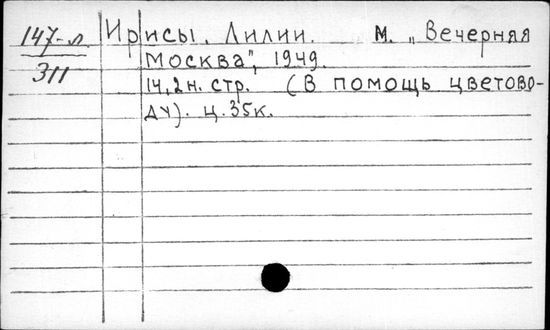 147-л Ирисы. Лилии. М. „Вечерняя
311 Москва", 1949.
14,2 н. стр. (В помощь цветово-
ду). ц. 35к.